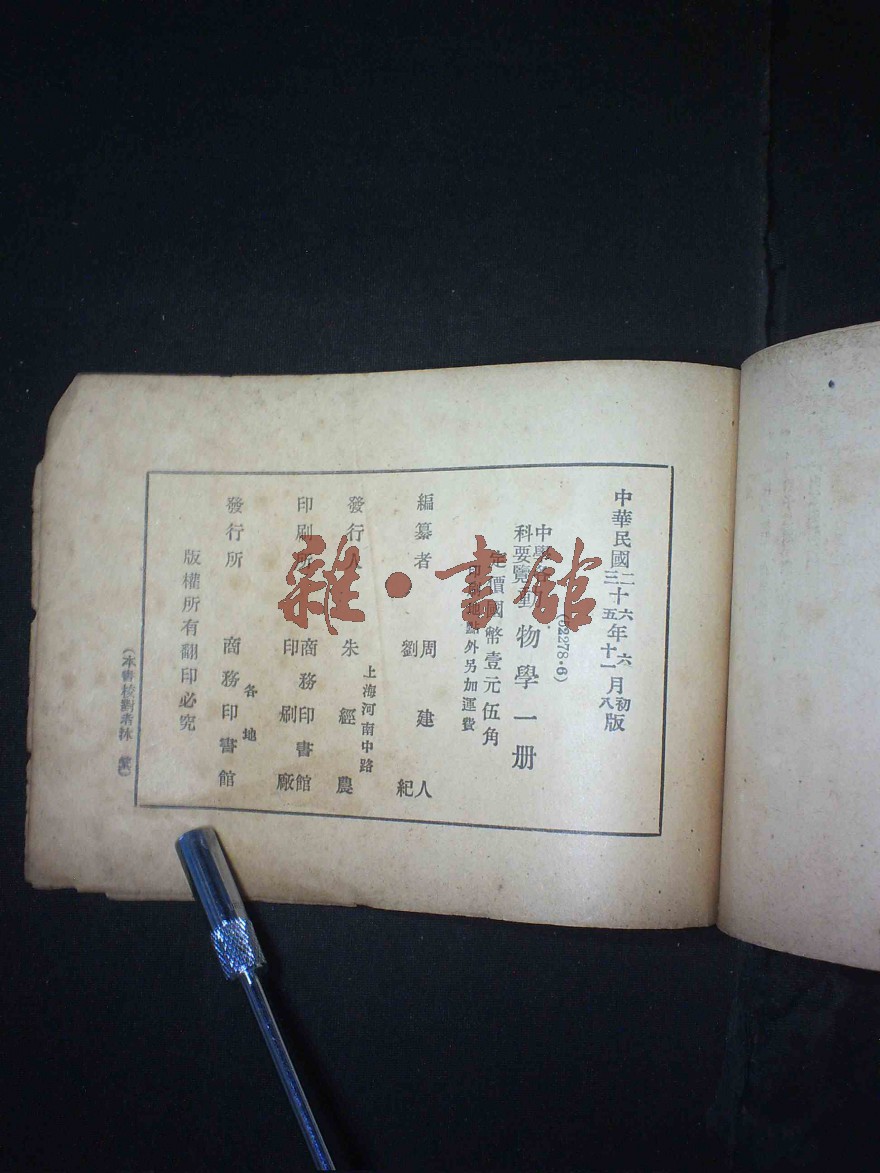 中華民國二十六年六月初版
三十五年十一月八版
(62278·6)
中學各科要覽動物學一册
定價國幣壹元伍角
印刷地點外另加運費
編纂者 周建人
劉紀
上海河南中路
發行人 朱經農
印刷所 商務印書館
印刷廠
各地
發行所 商務印書館
版權所有翻印必究
(本書校對者林
雜·書館